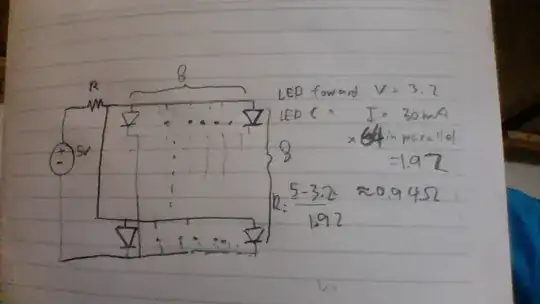 8
R
5V
8
LED foward V = 3.2
LED I = 30mA
× 64 in parallel
= 1.92
R = 5-3.2 / 1.92 ≈ 0.94Ω